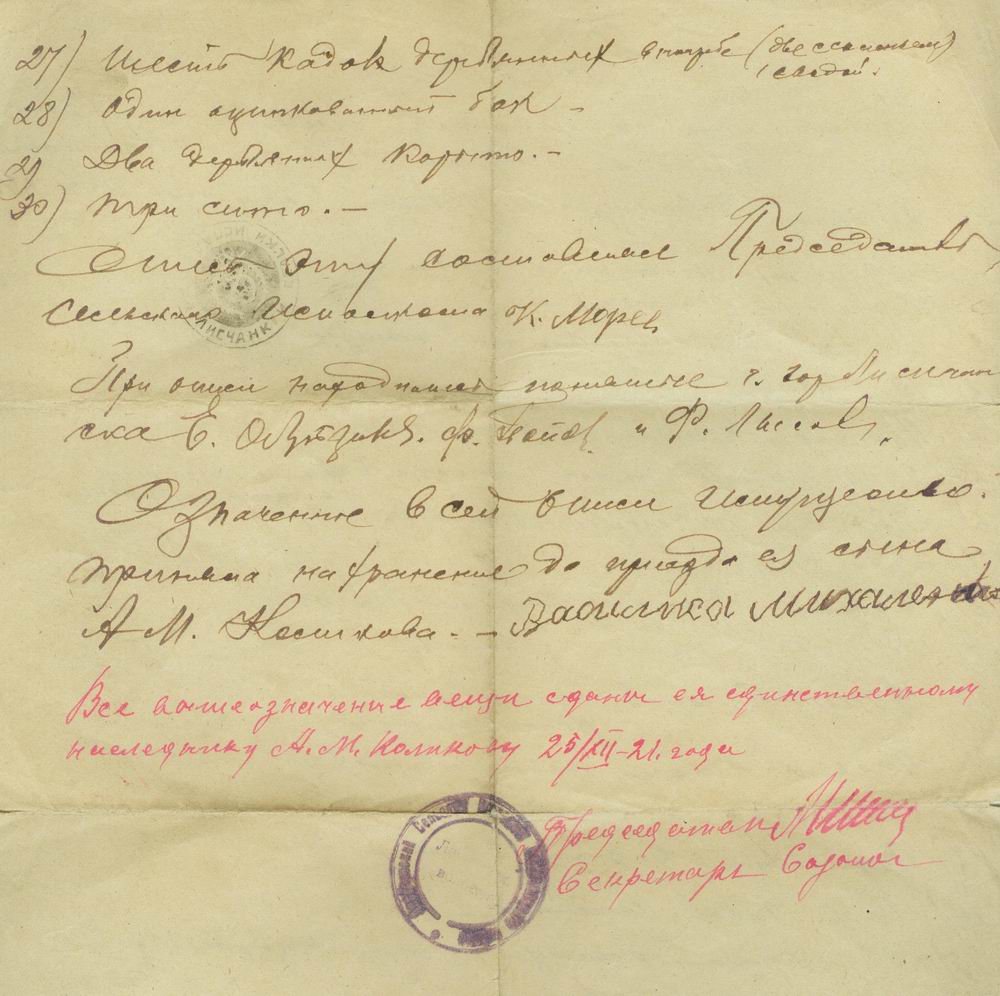 27) Шесть кадок деревянных в погребе (две
28) Один оцинкованный бак –
29) Два деревяних корыто. –
30) Три сито. –
Опись эту составил Председатель
сельского Исполкома К. Морев
ЛИСЧАНС
При описи находились понятые г. гор Лисичан
ска Е. Ф. Попов и Ф. Лысов.
Означенные в сей описи имущество
приняла на хранение до приезда ея сына
А М. Коликова. – Василиса Михаленко
Все вышеозначенные вещи сданы ея единственному
наследнику А. М. Коликову 25/XII–21. года
Председатель
Секретарь